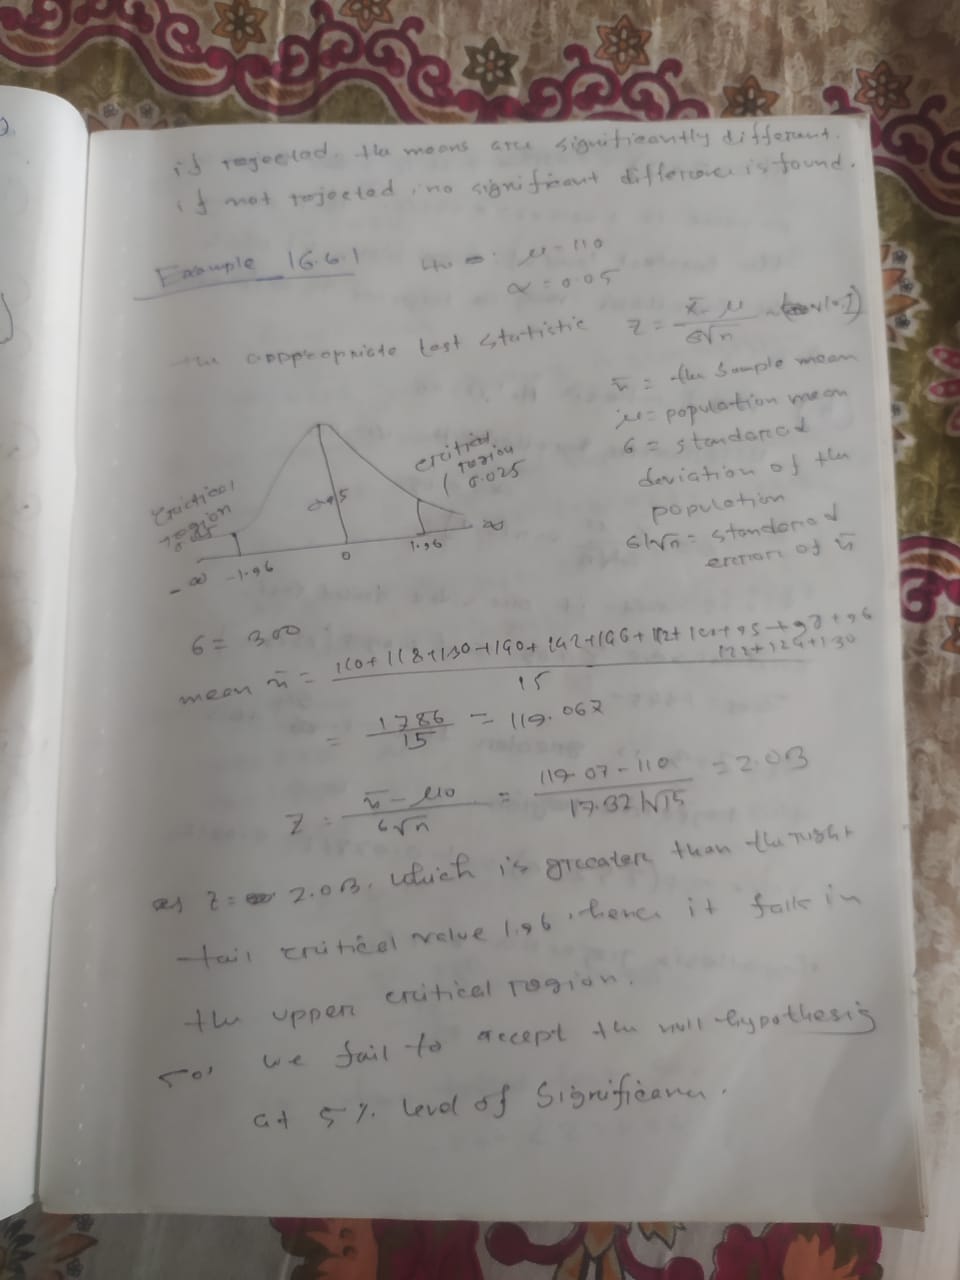 if rejected, the means are significantly different.
if not rejected, no significant difference is found.
Example 16.6.1
H0 : μ = 110
α = 0.05
the appropriate test statistic z = x̄ - μ / σ/√n
x̄ = the sample mean
μ = population mean
σ = standard
deviation of the
population
σ/√n = standard
error of x̄
critical
region
0.025
critical
region
- ∞ -1.96 0 1.96 ∞
σ² = 300
mean x̄ = 110+118+130+140+142+146+112+ +95+98+96
122+124+130
/ 15
= 1786 / 15 = 119.067
z = x̄ - μ0 / σ/√n = 119.07 - 110 / 17.32/√15 = 2.03
as z = 2.03, which is greater than the right
tail critical value 1.96, hence it falls in
the upper critical region.
so, we fail to accept the null hypothesis
at 5% level of significance.